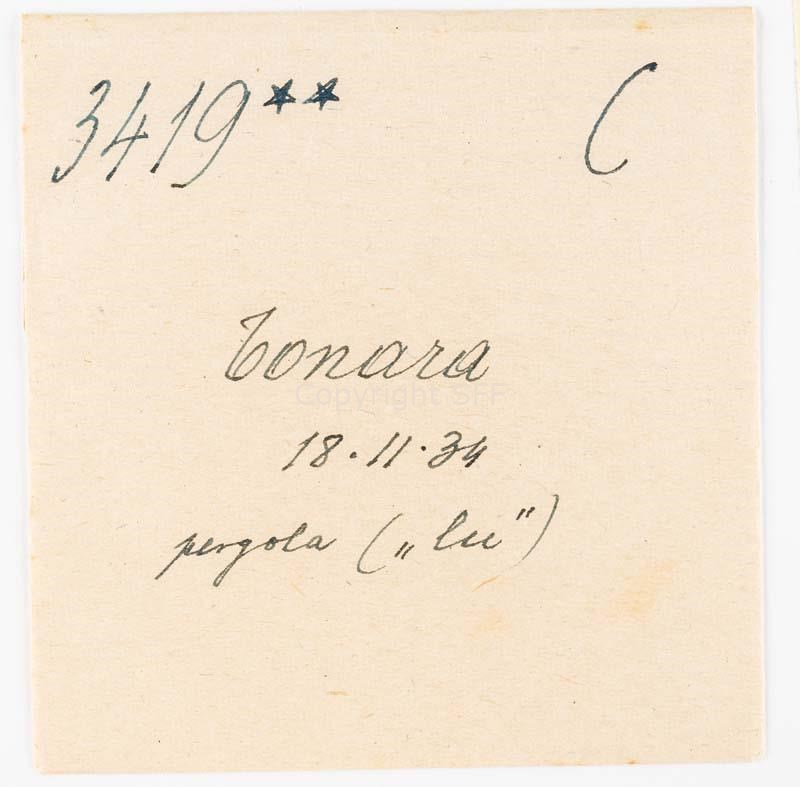 3419** C
Tonara
Copyright SFF
18.11.34
pergola („lii")